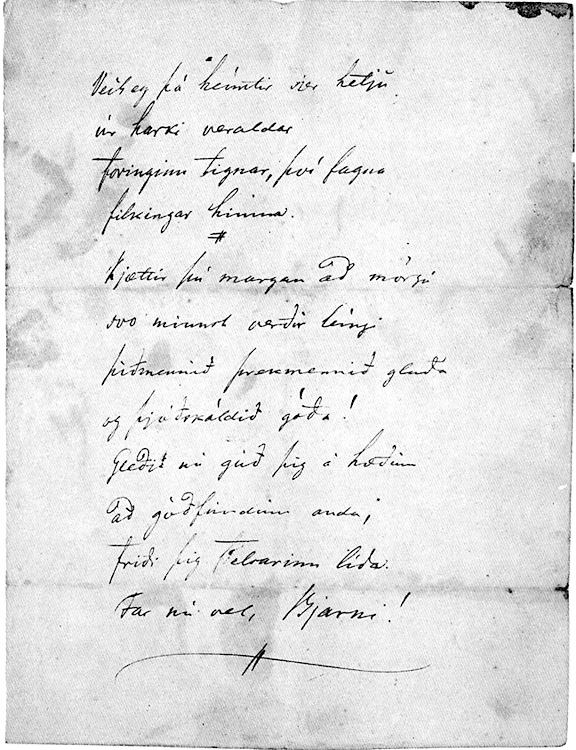 Veit eg þá heimtir sjer hetju
úr harki veraldar
foringinn tignar, því fagna
filkingar himna.
Kjættir þú margan að mörgu
svo minnst verður leingi
þíðmennið þrekmennið glaða
og þjóðskáldið góða!
Gleðji nú guð þig á hæðum
að góðfundum anda;
friði þig Frelsarinn líða.
Far nú vel, Bjarni!